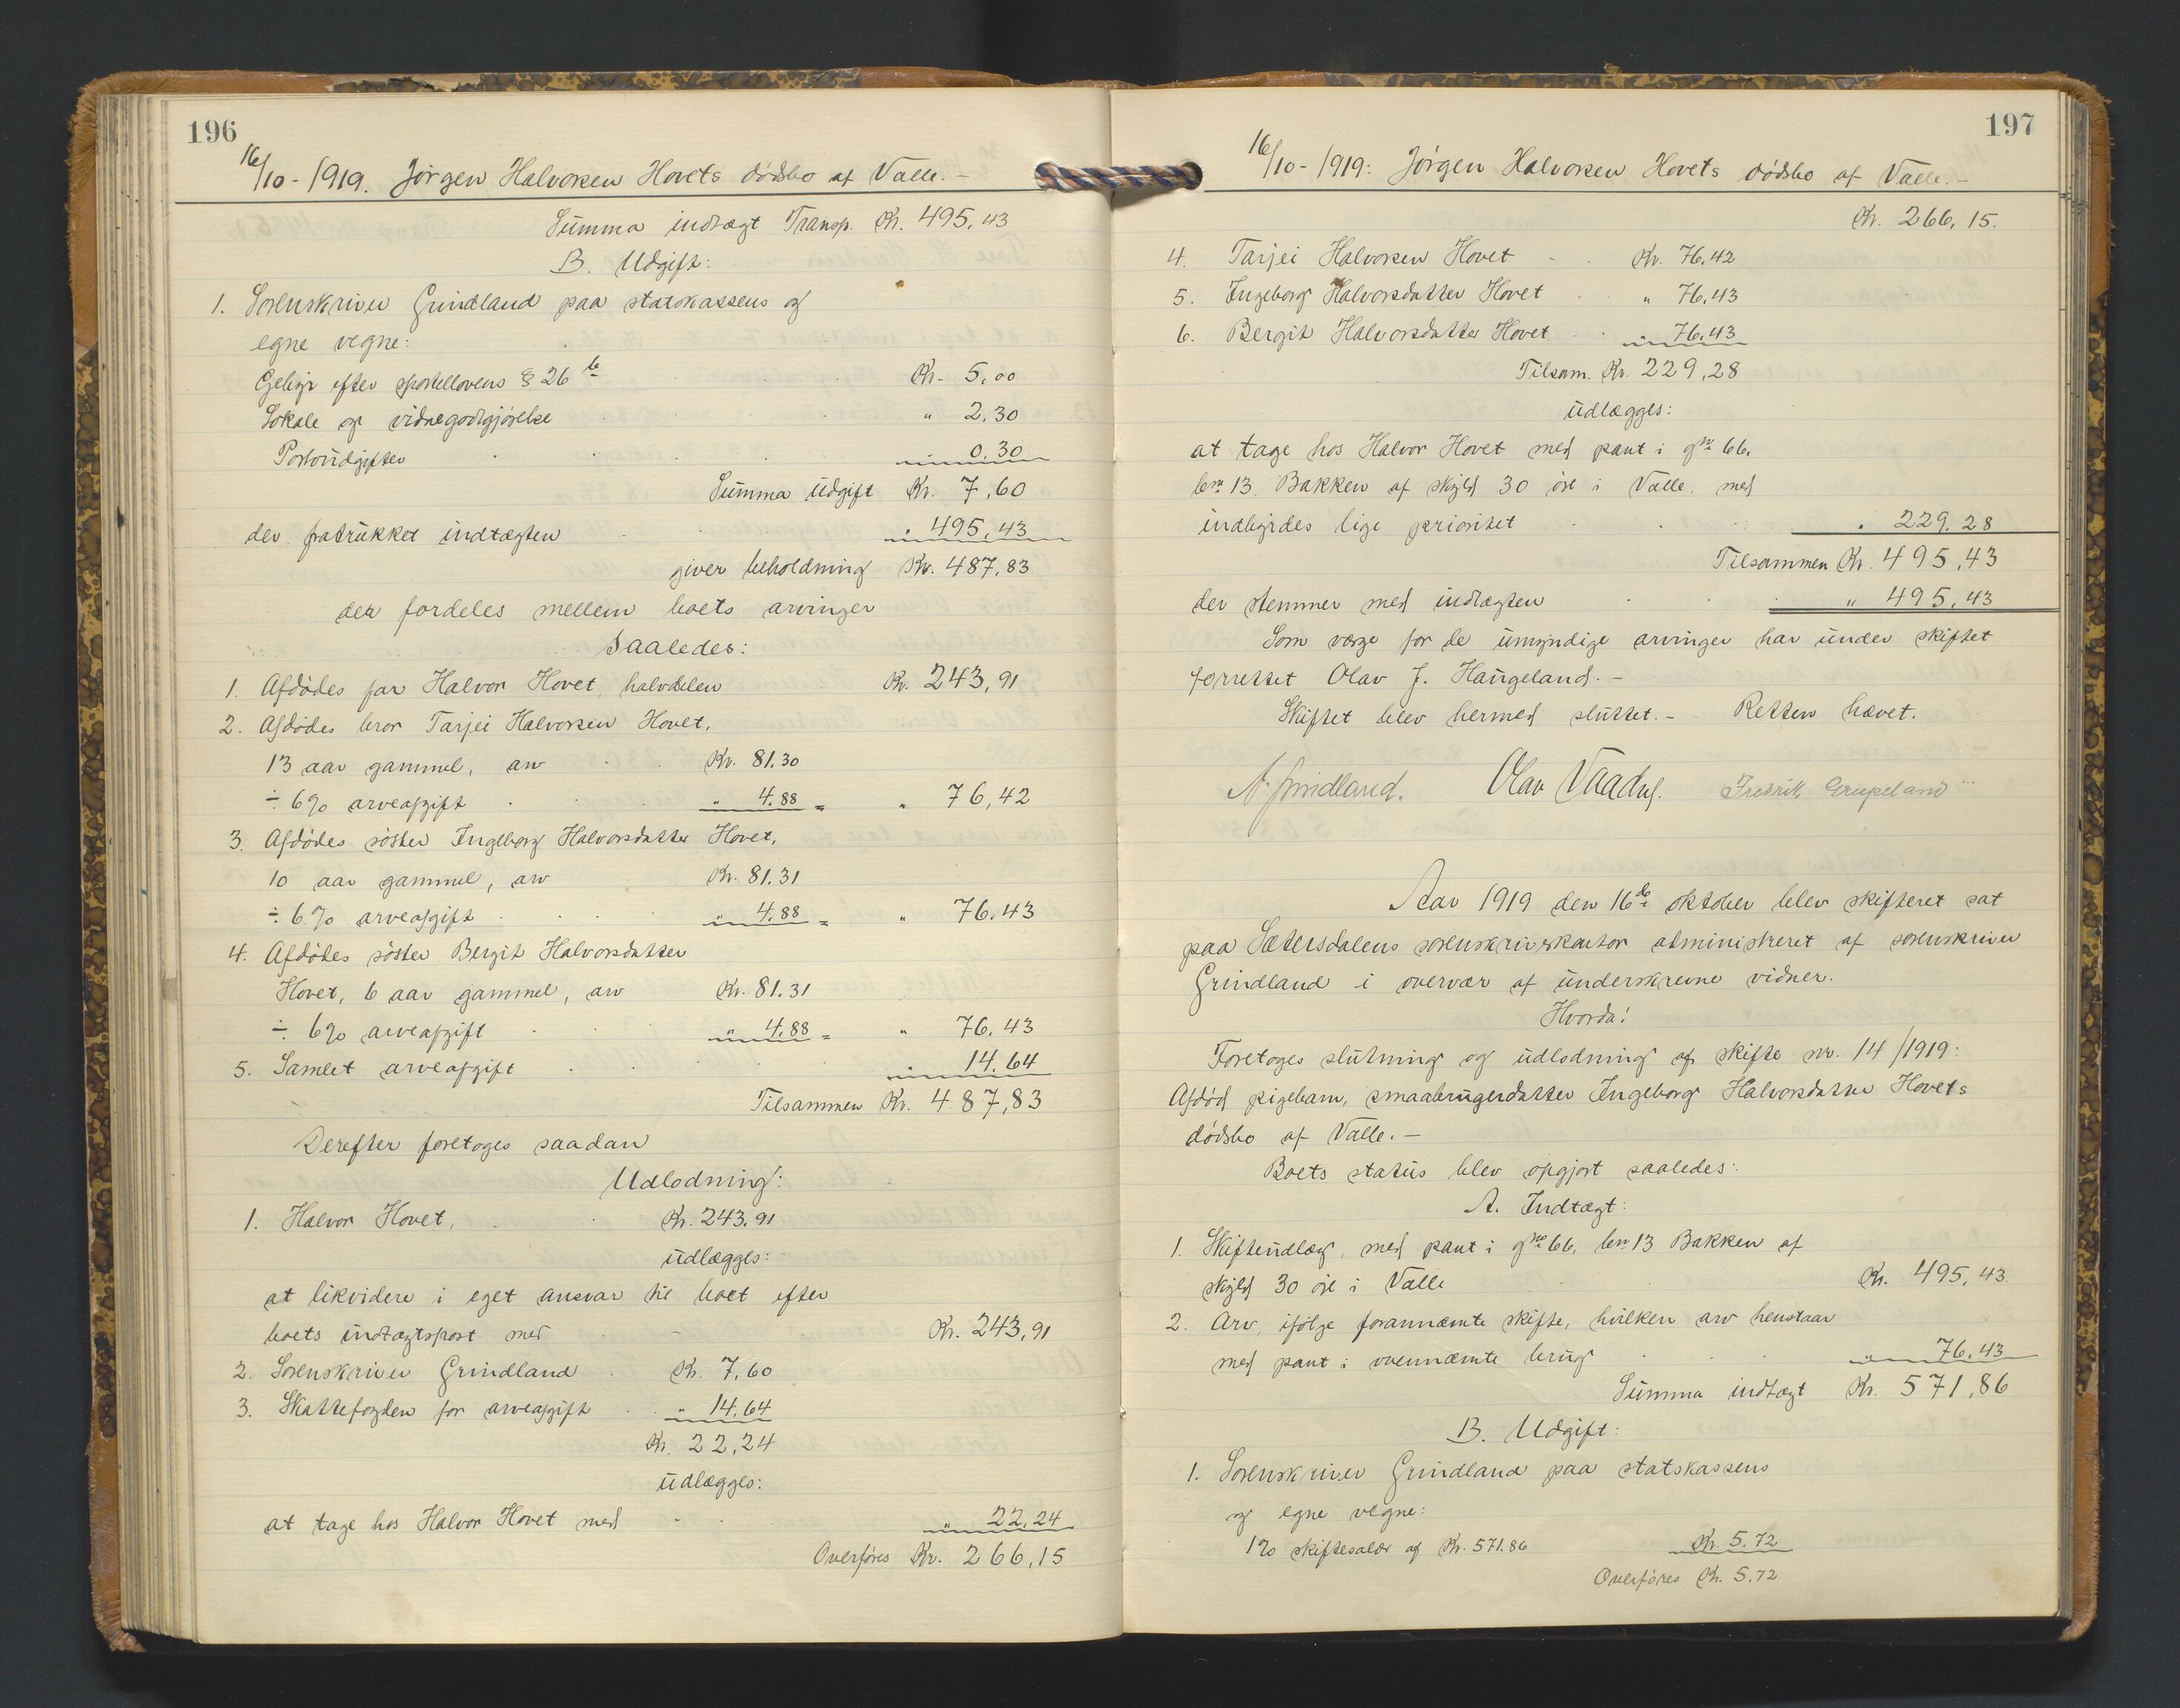 196
16/10-1919. Jörgen Halvorsen Hovets dödsbo af Valle.-
Summa indtægt Transp. Kr. 495,43
B. Udgift:
1. Sorenskriver Grindland paa statskassens og
egne vegne:
Gebyr efter sportellovens § 26 b Kr. 5,00
Lokale og vidnegodtgjörelse " 2.30
Portoudgifter " 0.30
Summa udgift Kr. 7,60
der fratrukket indtægten " 495,43
giver beholdning Kr. 487,83
der fordeles mellem boets arvinger
Saaledes:
1. Afdödes far Halvor Hovet, halvdelen Kr. 243,91
2. Afdödes bror Tarjei Halvorsen Hovet,
13 aar gammel, arv Kr. 81.30
÷ 6% arveafgift " 4.88 = " 76,42
3. Afdödes söster Ingeborg Halvorsdatter Hovet,
10 aar gammel, arv Kr. 81.31
÷ 6% arveafgift " 4.88 = " 76.43
4. Afdödes söster Bergit Halvorsdatter
Hovet, 6 aar gammel, arv Kr. 81.31
÷ 6% arveafgift " 4.88 = " 76.43
5. Samlet arveafgift " 14.64
Tilsammen Kr. 487,83
Derefter foretoges saadan
Udlodning:
1. Halvor Hovet, Kr. 243.91
udlægges:
at likvidere i eget ansvar til boet efter
boets indtægtspost med Kr. 243,91
2. Sorenskriver Grindland Kr. 7,60
3. Skattefogden for arveafgift " 14.64
Kr. 22,24
udlægges:
at tage hos Halvor Hovet med " 22.24
Overföres Kr. 266,15
197
16/10-1919: Jörgen Halvorsen Hovets dödsbo af Valle.-
Kr. 266,15.
4. Tarjei Halvorsen Hovet Kr. 76,42
5. Ingeborg Halvorsdatter Hovet " 76,43
6. Bergit Halvorsdatter Hovet " 76,43
Tilsam. Kr. 229,28
udlægges:
at tage hos Halvor Hovet med pant i gno 66,
bno 13 Bakken af skyld 30 öre i Valle, med
indbyrdes lige prioritet " 229.28
Tilsammen Kr. 495,43
der stemmer med indtægten " 495,43
Som værge for de umyndige arvinger har under skiftet
forrettet Olav J. Haugeland.-
Skiftet blev hermed sluttet.- Retten hævet.
N. Grindland. Olav Fredrik
Aar 1919 den 16de oktober blev skifteret sat
paa Sætersdalens sorenskriverkontor administreret af sorenskriver
Grindland i overvær af underskrevne vidner.
Hvorda!
Foretoges slutning og udlodning af skifte nr. 14/1919:
Afdöd pigebarn, smaabrugerdatter Ingeborg Halvorsdatter Hovets
dödsbo af Valle.-
Boets status blev opgjort saaledes:
A. Indtægt:
1. Skifteudlæg, med pant i gno 66, bno 13 Bakken af
skyld 30 öre i Valle Kr. 495,43
2. Arv, ifölge forannæmte skifte, hvilken arv henstaar
med pant i ovennæmte brug " 76.43
Summa indtægt Kr. 571,86
B. Udgift:
1. Sorenskriver Grindland paa statskassens
og egne vegne:
1% skiftesalær af Kr. 571.86 Kr. 5.72
Overföres Kr. 5.72